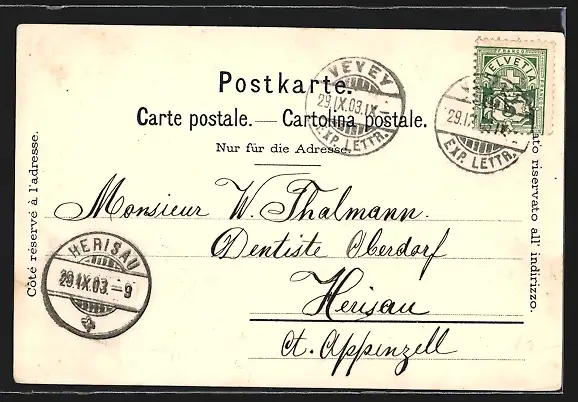 Postkarte.
Carte postale. — Cartolina postale.
Nur für die Adresse.
Côté réservé à l'adresse.
lato riservato all' indirizzo.
FRANCO
HELVETIA
VEVEY
29.IX.03.IX-
EXP. LETTR.
29.IX.03.IX-
EXP. LETTR.
HERISAU
29.IX.03.-9
Monsieur W. Thalmann.
Dentiste Oberdorf
Herisau
Ct. Appenzell